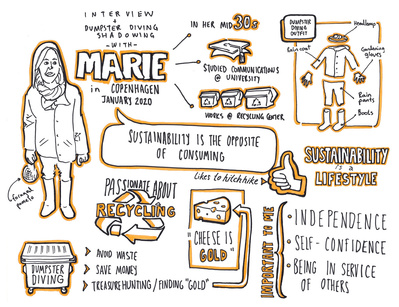 INTERVIEW
+
DUMPSTER DIVING
SHADOWING
- WITH -
MARIE
in COPENHAGEN
JANUARY 2020
IN HER MID 30s
STUDIED COMMUNICATIONS
@ UNIVERSITY
WORKS @ RECYCLING CENTER
DUMPSTER
DIVING
OUTFIT
Headlamp
Rain coat
Gardening
gloves
Rain
pants
Boots
SUSTAINABILITY IS THE OPPOSITE
OF CONSUMING
Likes to hitchhike
SUSTAINABILITY
is a
LIFESTYLE
PASSIONATE ABOUT
RECYCLING
"CHEESE IS
GOLD"
IMPORTANT TO ME
INDEPENDENCE
SELF-CONFIDENCE
BEING IN SERVICE
OF OTHERS
DUMPSTER
DIVING
AVOID WASTE
SAVE MONEY
TREASURE HUNTING / FINDING "GOLD"